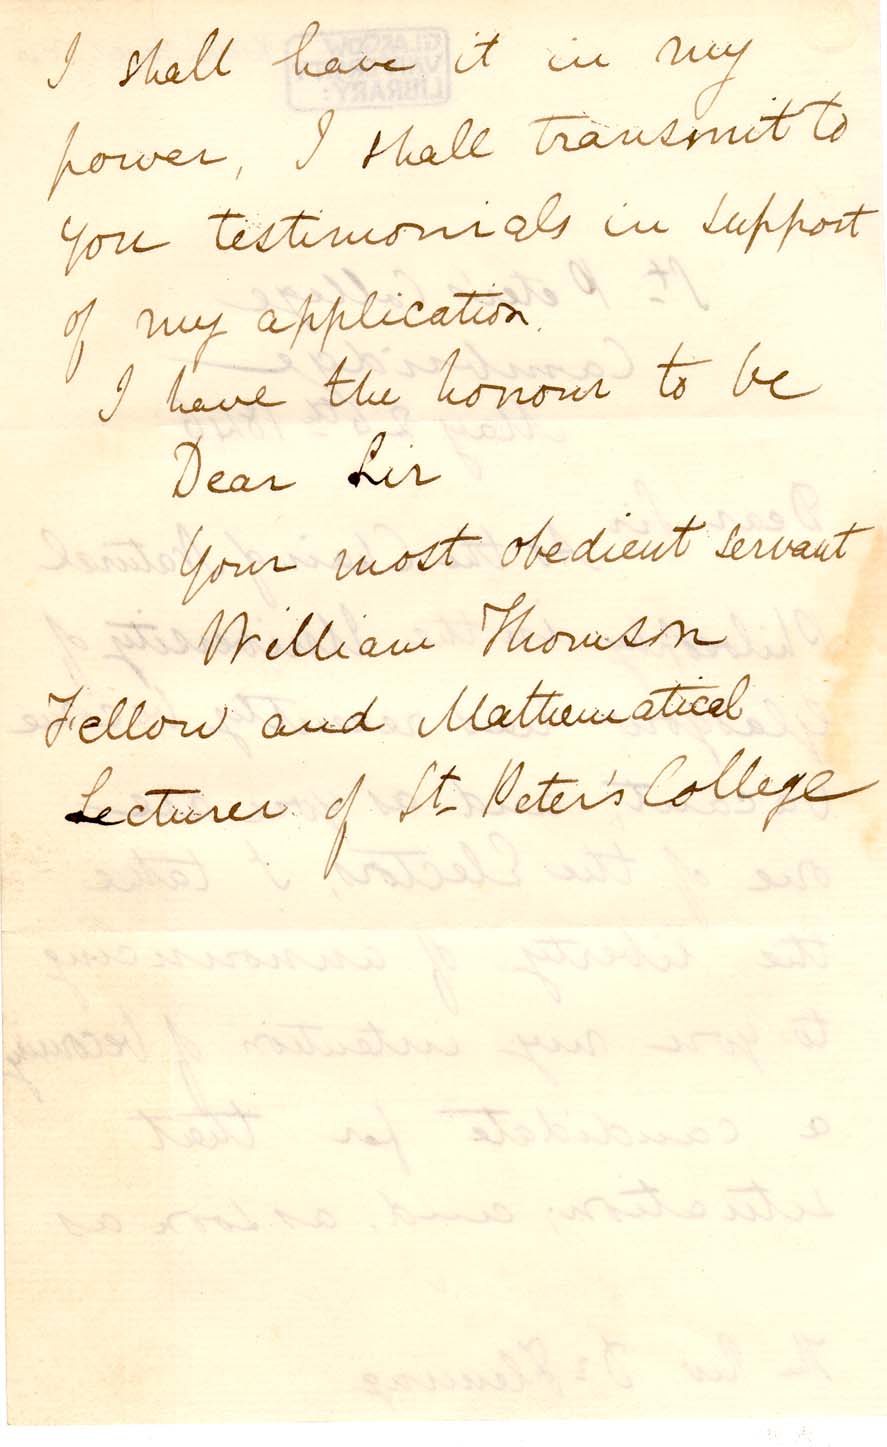 I shall have it in my
power, I shall transmit to
you testimonials in support
of my application.
I have the honour to be
Dear Sir
Your most obedient servant
William Thomson
Fellow and Mathematical
Lecturer of St. Peter's College